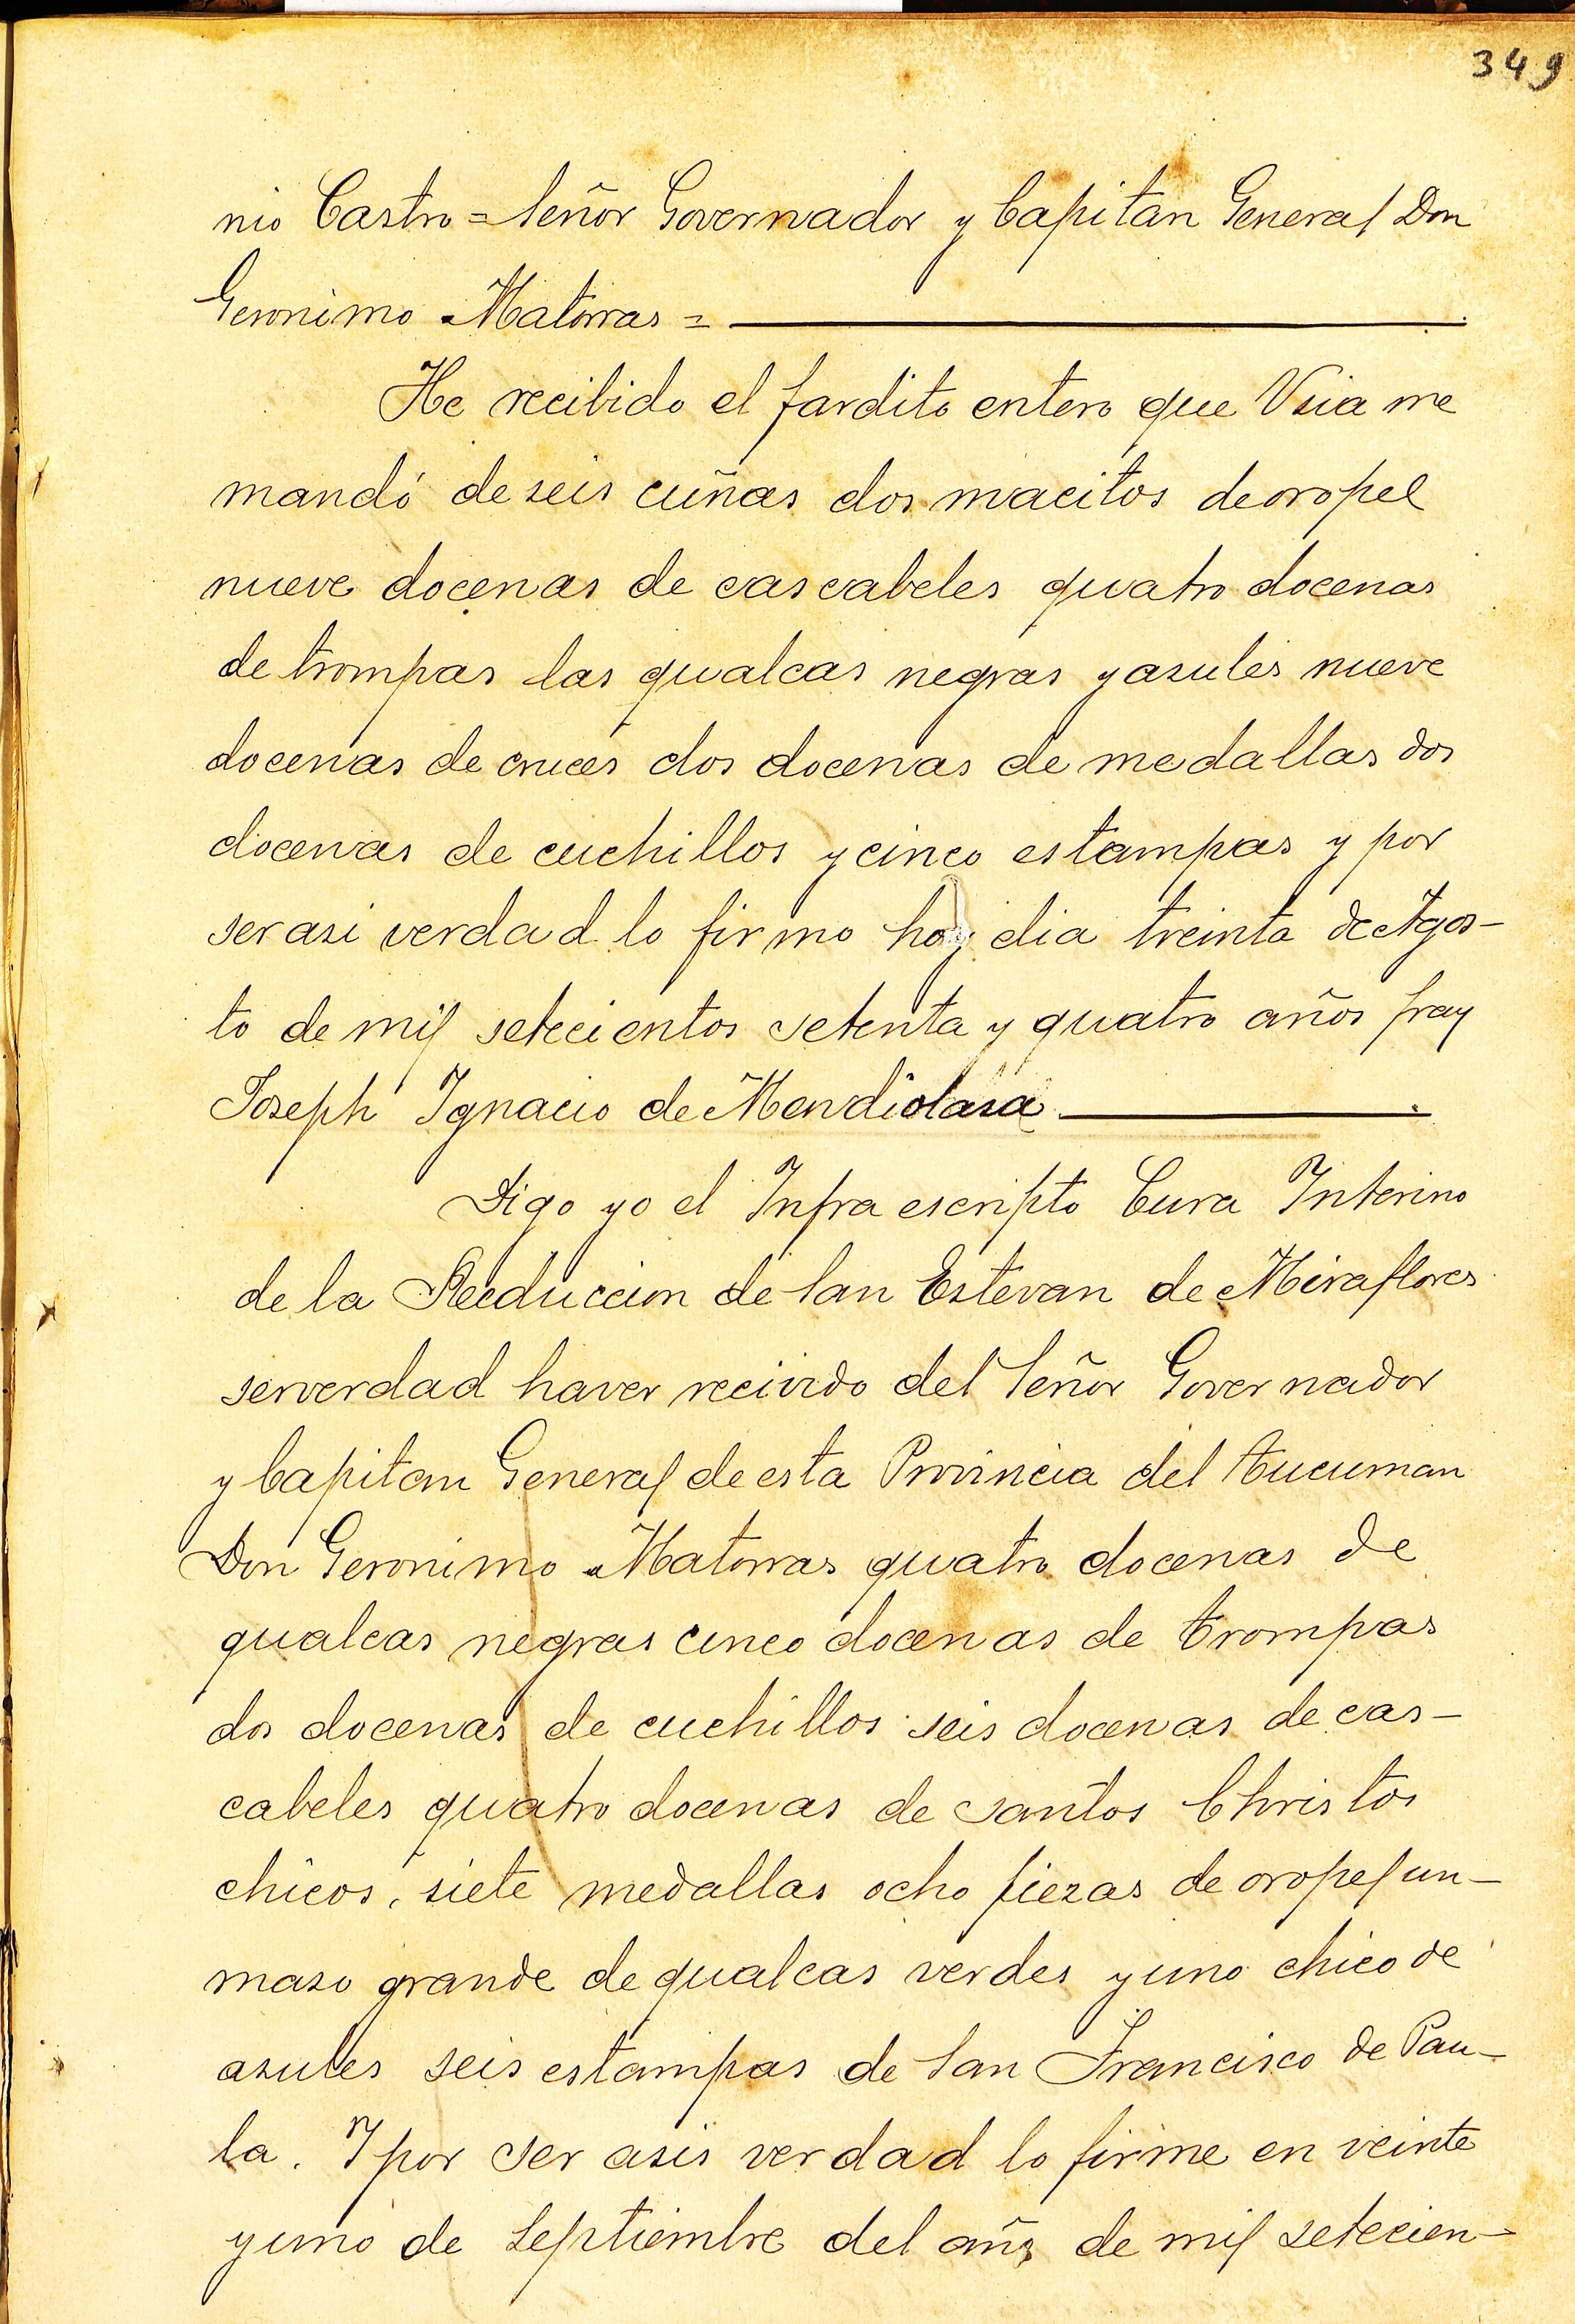 349
nio Castro = Señor Governador y Capitan General Don
Geronimo Matorras =
He recibido el fardito entero que Vsia me
mandó de seis cuñas dos macitos de oropel
nueve docenas de cascabeles quatro docenas
de trompas las qualcas negras y asules nueve
docenas de cruces dos docenas de medallas dos
docenas de cuchillos y cinco estampas y por
ser asi verdad lo firmo hoy dia treinta de Agos-
to de mil setecientos setenta y quatro años fray
Joseph Ignacio de Mendiolasa
Digo yo el Infra escripto Cura Interino
de la Reeduccion de San Estevan de Miraflores
ser verdad haver recivido del Señor Governador
y Capitan General de esta Provincia del Tucuman
Don Geronimo Matorras quatro docenas de
qualcas negras cinco docenas de trompas
dos docenas de cuchillos seis docenas de cas-
cabeles quatro docenas de santos Christos
chicos, siete medallas ocho piezas de oropel un-
maso grande de qualcas verdes y uno chico de
asules seis estampas de San Francisco de Pau-
la. I por ser asis verdad lo firme en veinte
y uno de Septiembre del año de mil setecien-